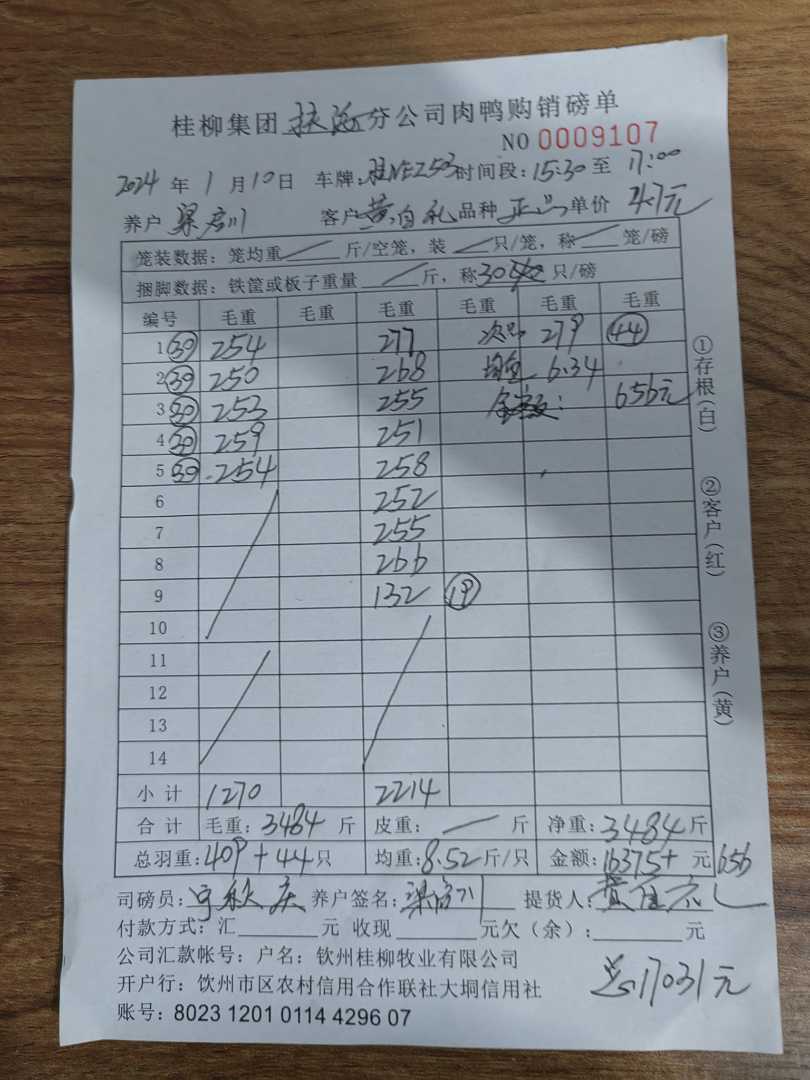 桂柳集团 扶 分公司肉鸭购销磅单
NO 0009107
2024 年 1 月 10 日 车牌: 253 时间段: 15:30 至 17:00
养户 梁 川 客户 黄 礼 品种 正品 单价 4.7元
笼装数据: 笼均重 斤/空笼, 装 只/笼, 称 笼/磅
捆脚数据: 铁筐或板子重量 斤, 称 30 只/磅
编号 毛重 毛重 毛重 毛重 毛重 毛重
1 30 254 277 次品 279 44
2 30 250 268 均重 6.34
3 30 253 255 金额: 656元
4 30 259 251
5 30 254 258
6 252
7 255
8 266
9 132 19
10
11
12
13
14
小计 1270 2214
合计 毛重: 3484 斤 皮重: 斤 净重: 3484 斤
总羽重: 409+44 只 均重: 8.52 斤/只 金额: 16375+ 元 656
司磅员: 秋庆 养户签名: 梁 川 提货人: 黄
付款方式: 汇 元 收现 元欠(余): 元
公司汇款帐号: 户名: 钦州桂柳牧业有限公司
开户行: 钦州市区农村信用合作联社大垌信用社
总17031元
账号: 8023 1201 0114 4296 07
①存根(白)
②客户(红)
③养户(黄)